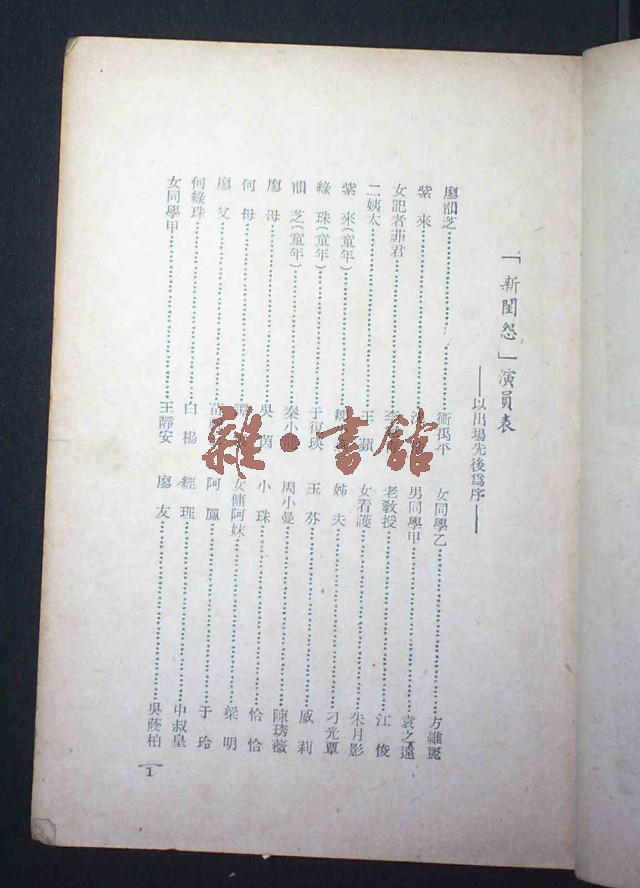 「新閨怨」演員表
——以出場先後爲序——
廖芝……衞禹平 女同學乙……方維麗
紫 來…… 男同學甲……袁之遠
女記者菲君……李 老教授……江 俊
二姨太……王 蘋 女看護……朱月影
紫 來(童年)…… 姊 夫……刁光覃
綠 珠(童年)……于瑛 玉 芬……威 莉
芝(童年)……秦小 周小曼……陳琇薇
廖 母……吳 茵 小 珠……恰 恰
何 母…… 女傭阿妹……梁 明
廖 父…… 阿 鳳……于 玲
何綠珠……白 楊 經 理……中叔皇
女同學甲……王靜安 廖 友……吳蔭柏
1
雜·書館